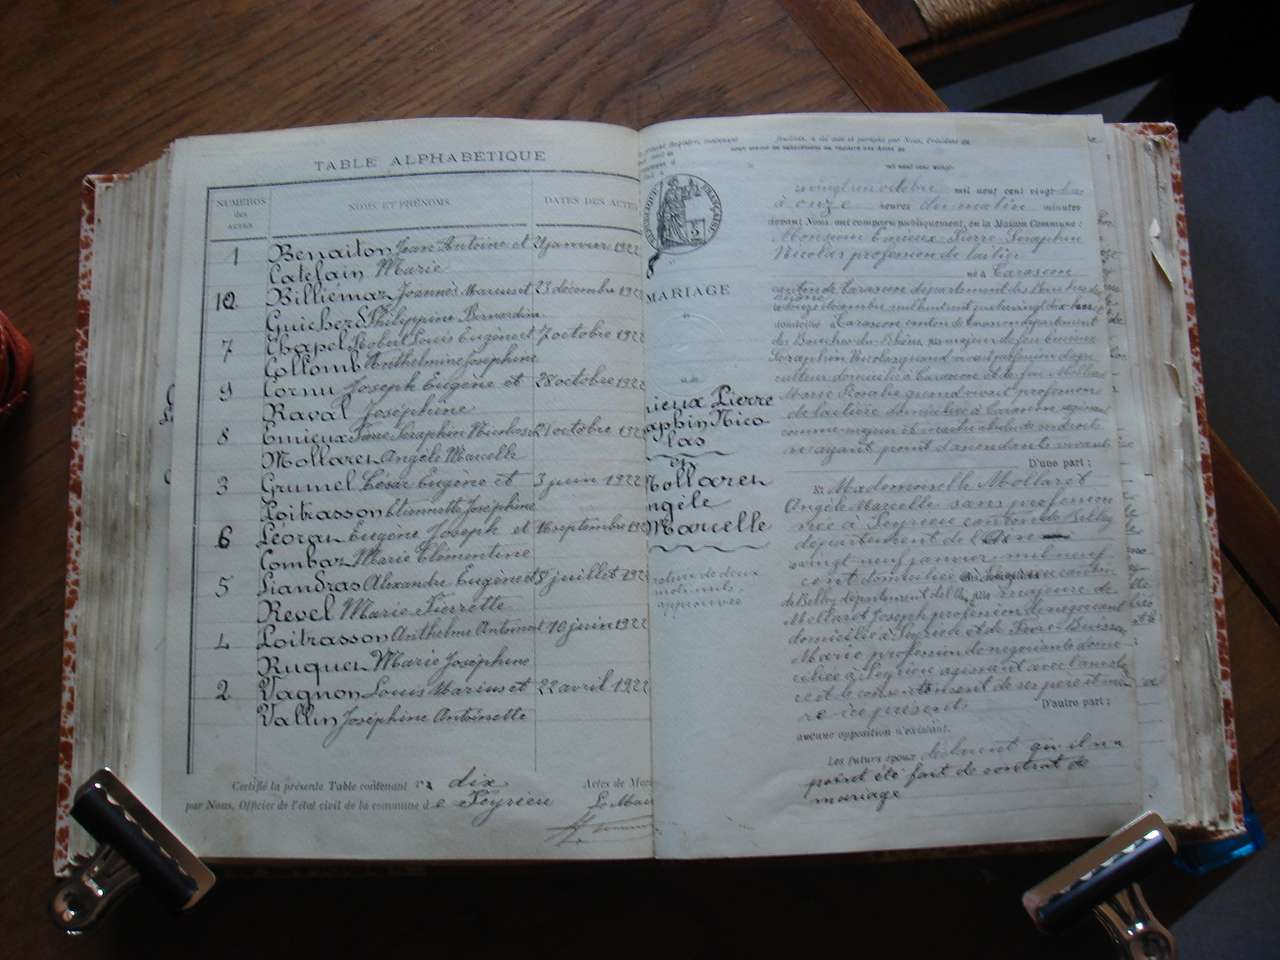 TABLE ALPHABÉTIQUE
NUMÉROS des ACTES
NOMS ET PRÉNOMS
DATES DES ACTES
1 Benaiton Jean Antoine et 21 janvier 1922
Catelain Marie
10 Billiémaz Joannès Marius et 23 décembre 192
Guicherd Philippine Bernardine
7 Chapel Robert Louis Eugène et 7 octobre 1922
Collomb Anthelmine Joséphine
9 Cornu Joseph Eugène et 28 octobre 1922
Raval Joséphine
8 Emieux Pierre Seraphin Nicolas et 21 octobre 192
Mollaret Angèle Marcelle
3 Grumel César Eugène et 3 juin 1922
Poitrasson Etiennette Joséphine
6 Eugène Joseph et 16 septembre 192
Combaz Marie Clémentine
5 Liandras Alexandre Eugène et 8 juillet 192
Revel Marie Pierrette
4 Poitrasson Anthelme Antoine et 10 juin 1922
Ruquet Marie Joséphine
2 Vagnon Louis Marius et 22 avril 1922
Vallin Joséphine Antoinette
Certifié la présente Table contenant dix Actes de Mar
par Nous, Officier de l'état civil de la commune de Peyrieu
Le Mair
MARIAGE
ieux Pierre
aphin Nico
las
et
Mollaret
ngèle
Marcelle
rature de deux
mots nuls,
approuvée
vingt un octobre mil neuf cent vingt deux
à onze heures du matin minutes
devant Nous ont comparu publiquement, en la Maison Commune :
Monsieur Emieux Pierre Seraphin
Nicolas profession de laitier
né à Tarascon
canton de Tarascon département des Bouches du
Rhône
le douze décembre mil huit cent quatre vingt dix
domicilié à Tarascon canton de Tarascon département
des Bouches-du-Rhône, fils majeur de feu Emieux
Seraphin Nicolas quand vivait profession d'agri
culteur domicilié à Tarascon et de feu Mollard
Marie Rosalie quand vivait profession
de laitière domiciliée à Tarascon agissant
comme majeur et maître absolu de ses droits
n'ayant point d'ascendants vivants
D'une part ;
Et Mademoiselle Mollaret
Angèle Marcelle sans profession
née à Peyrieu canton de Belley
département de l'Ain
vingt neuf janvier mil neuf
cent domiciliée à Peyrieu canton
de Belley département de l'Ain fille majeure de
Mollaret Joseph profession de negociant
domicilié à Peyrieu et de Buisson
Marie profession de negociante domi
ciliée à Peyrieu agissant avec l'assista
ce et le consentement de ses père et mè
re ici présents D'autre part ;
aucune opposition n'existant.
Les futurs époux déclarent qu'il n'a
point été fait de contrat de
mariage